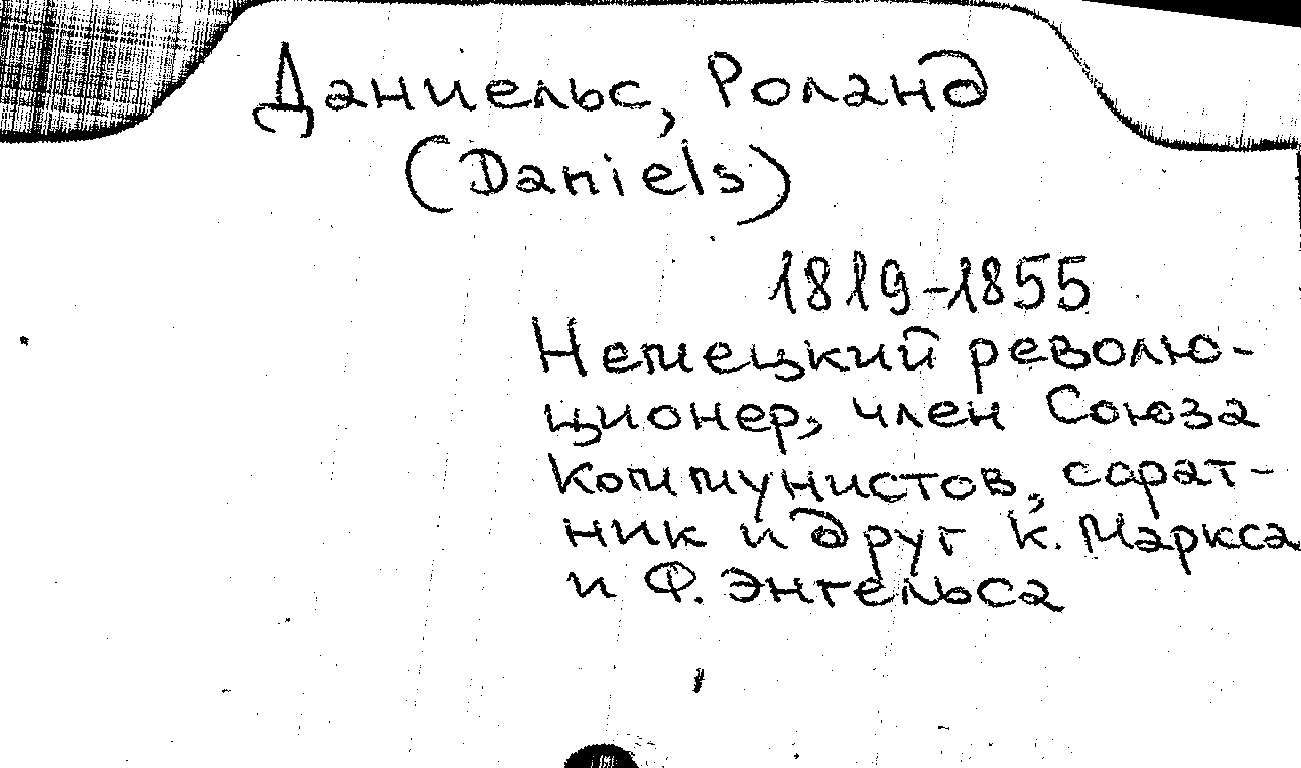 Даниельс, Роланд
(Daniels)
1819-1855
Немецкий револю-
ционер, член Союза
Коммунистов, сорат-
ник и друг К. Маркса
и Ф. Энгельса